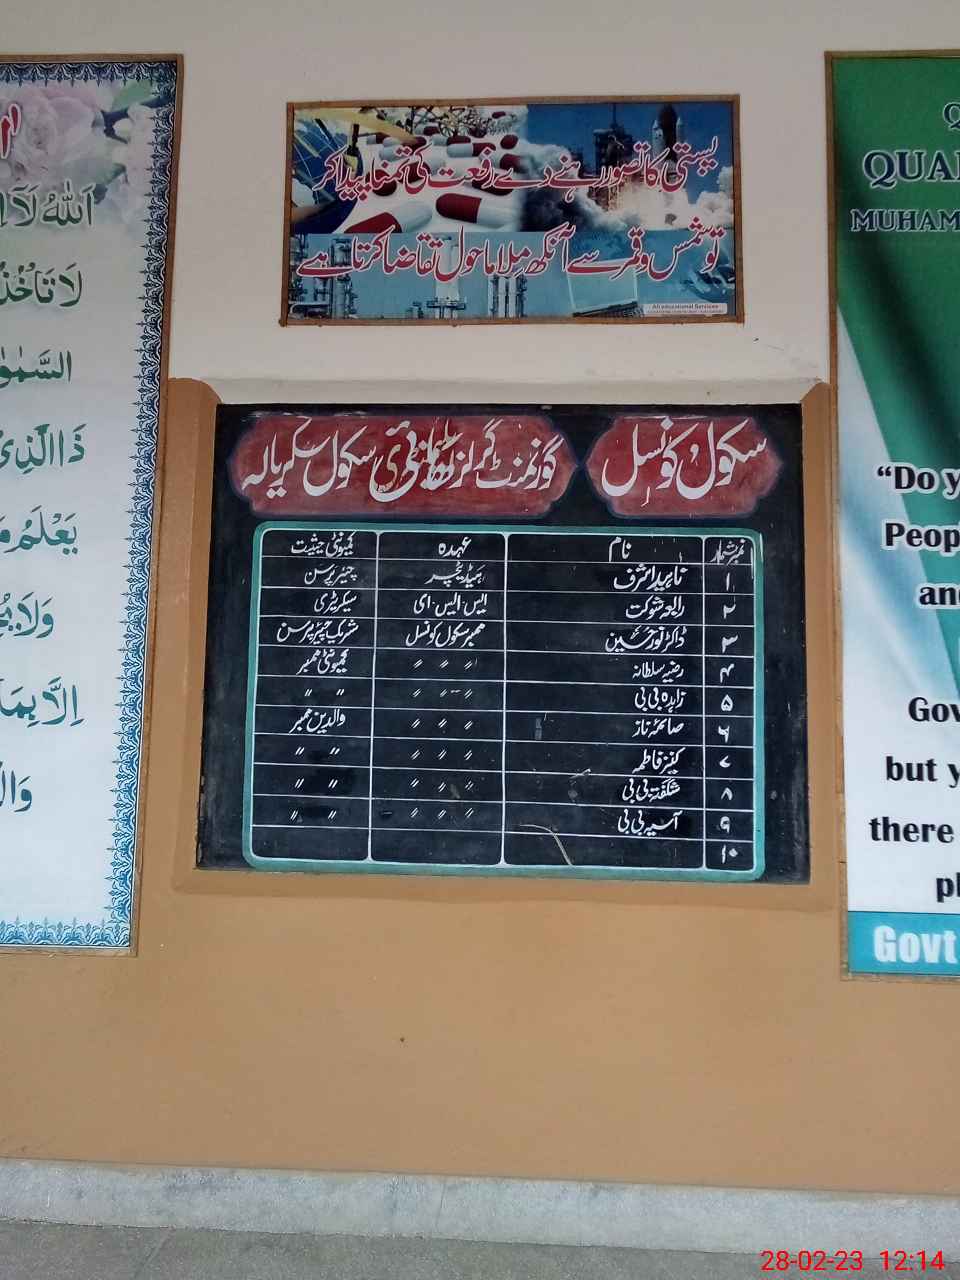 پستی کا تصور رہنے دے رفعت کی تمنا پیدا کر
تو شمس و قمر سے آنکھ مِلا ماحول تقاضا کرتا ہے
Ali educational Services
سکول کونسل
گورنمنٹ گرلز ہائی سکول سکریالہ
نمبر شمار نام عہدہ کمیونٹی حیثیت
۱ ناہید اشرف ہیڈ ٹیچر چیئر پرسن
۲ رابعہ شوکت ایس۔ایس۔ای سیکریٹری
۳ ڈاکٹر نور حسین ممبر سکول کونسل شریک چیئر پرسن
۴ رضیہ سلطانہ 〃 〃 〃 کمیونٹی ممبر
۵ زاہدہ بی بی 〃 〃 〃 〃 〃
۶ صائمہ ناز 〃 〃 〃 والدین ممبر
۷ کنیز فاطمہ 〃 〃 〃 〃 〃
۸ شگفتہ بی بی 〃 〃 〃 〃 〃
۹ آسیہ بی بی 〃 〃 〃 〃 〃
۱۰
اَللّٰهُ لَآ
لَا تَاْخُذُ
السَّمٰوٰ
ذَا الَّذِیْ
يَعْلَمُ مَ
وَلَا يُ
اِلَّا بِمَا
Q
QUA
MUHAM
“Do y
Peop
an
Gov
but y
there
pl
Govt
28-02-23 12:14